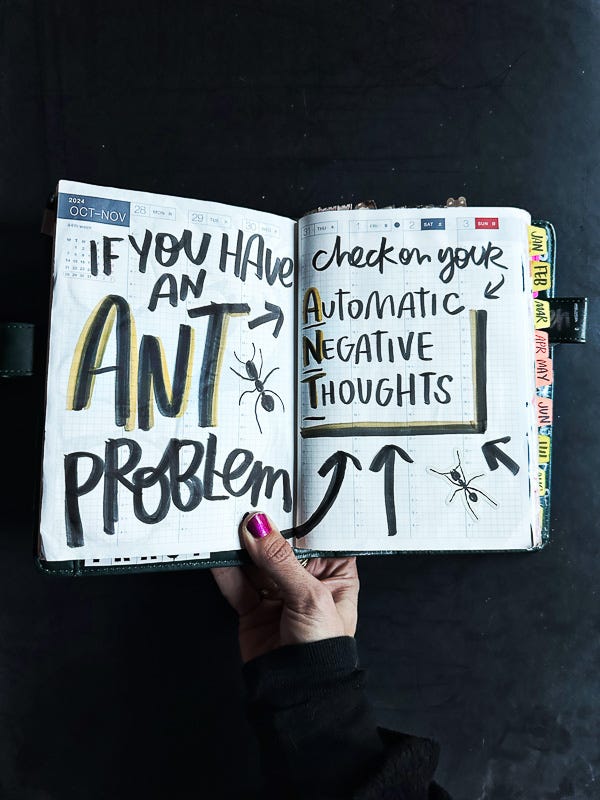 2024
OCT-NOV
28 MON
29 TUE
30 WED
IF YOU HAVE
AN
ANT
PROBLEM
31 THU
1 FRI
2 SAT
3 SUN
check on your
AUTOMATIC
NEGATIVE
THOUGHTS
JAN
FEB
MAR
APR
MAY
JUN